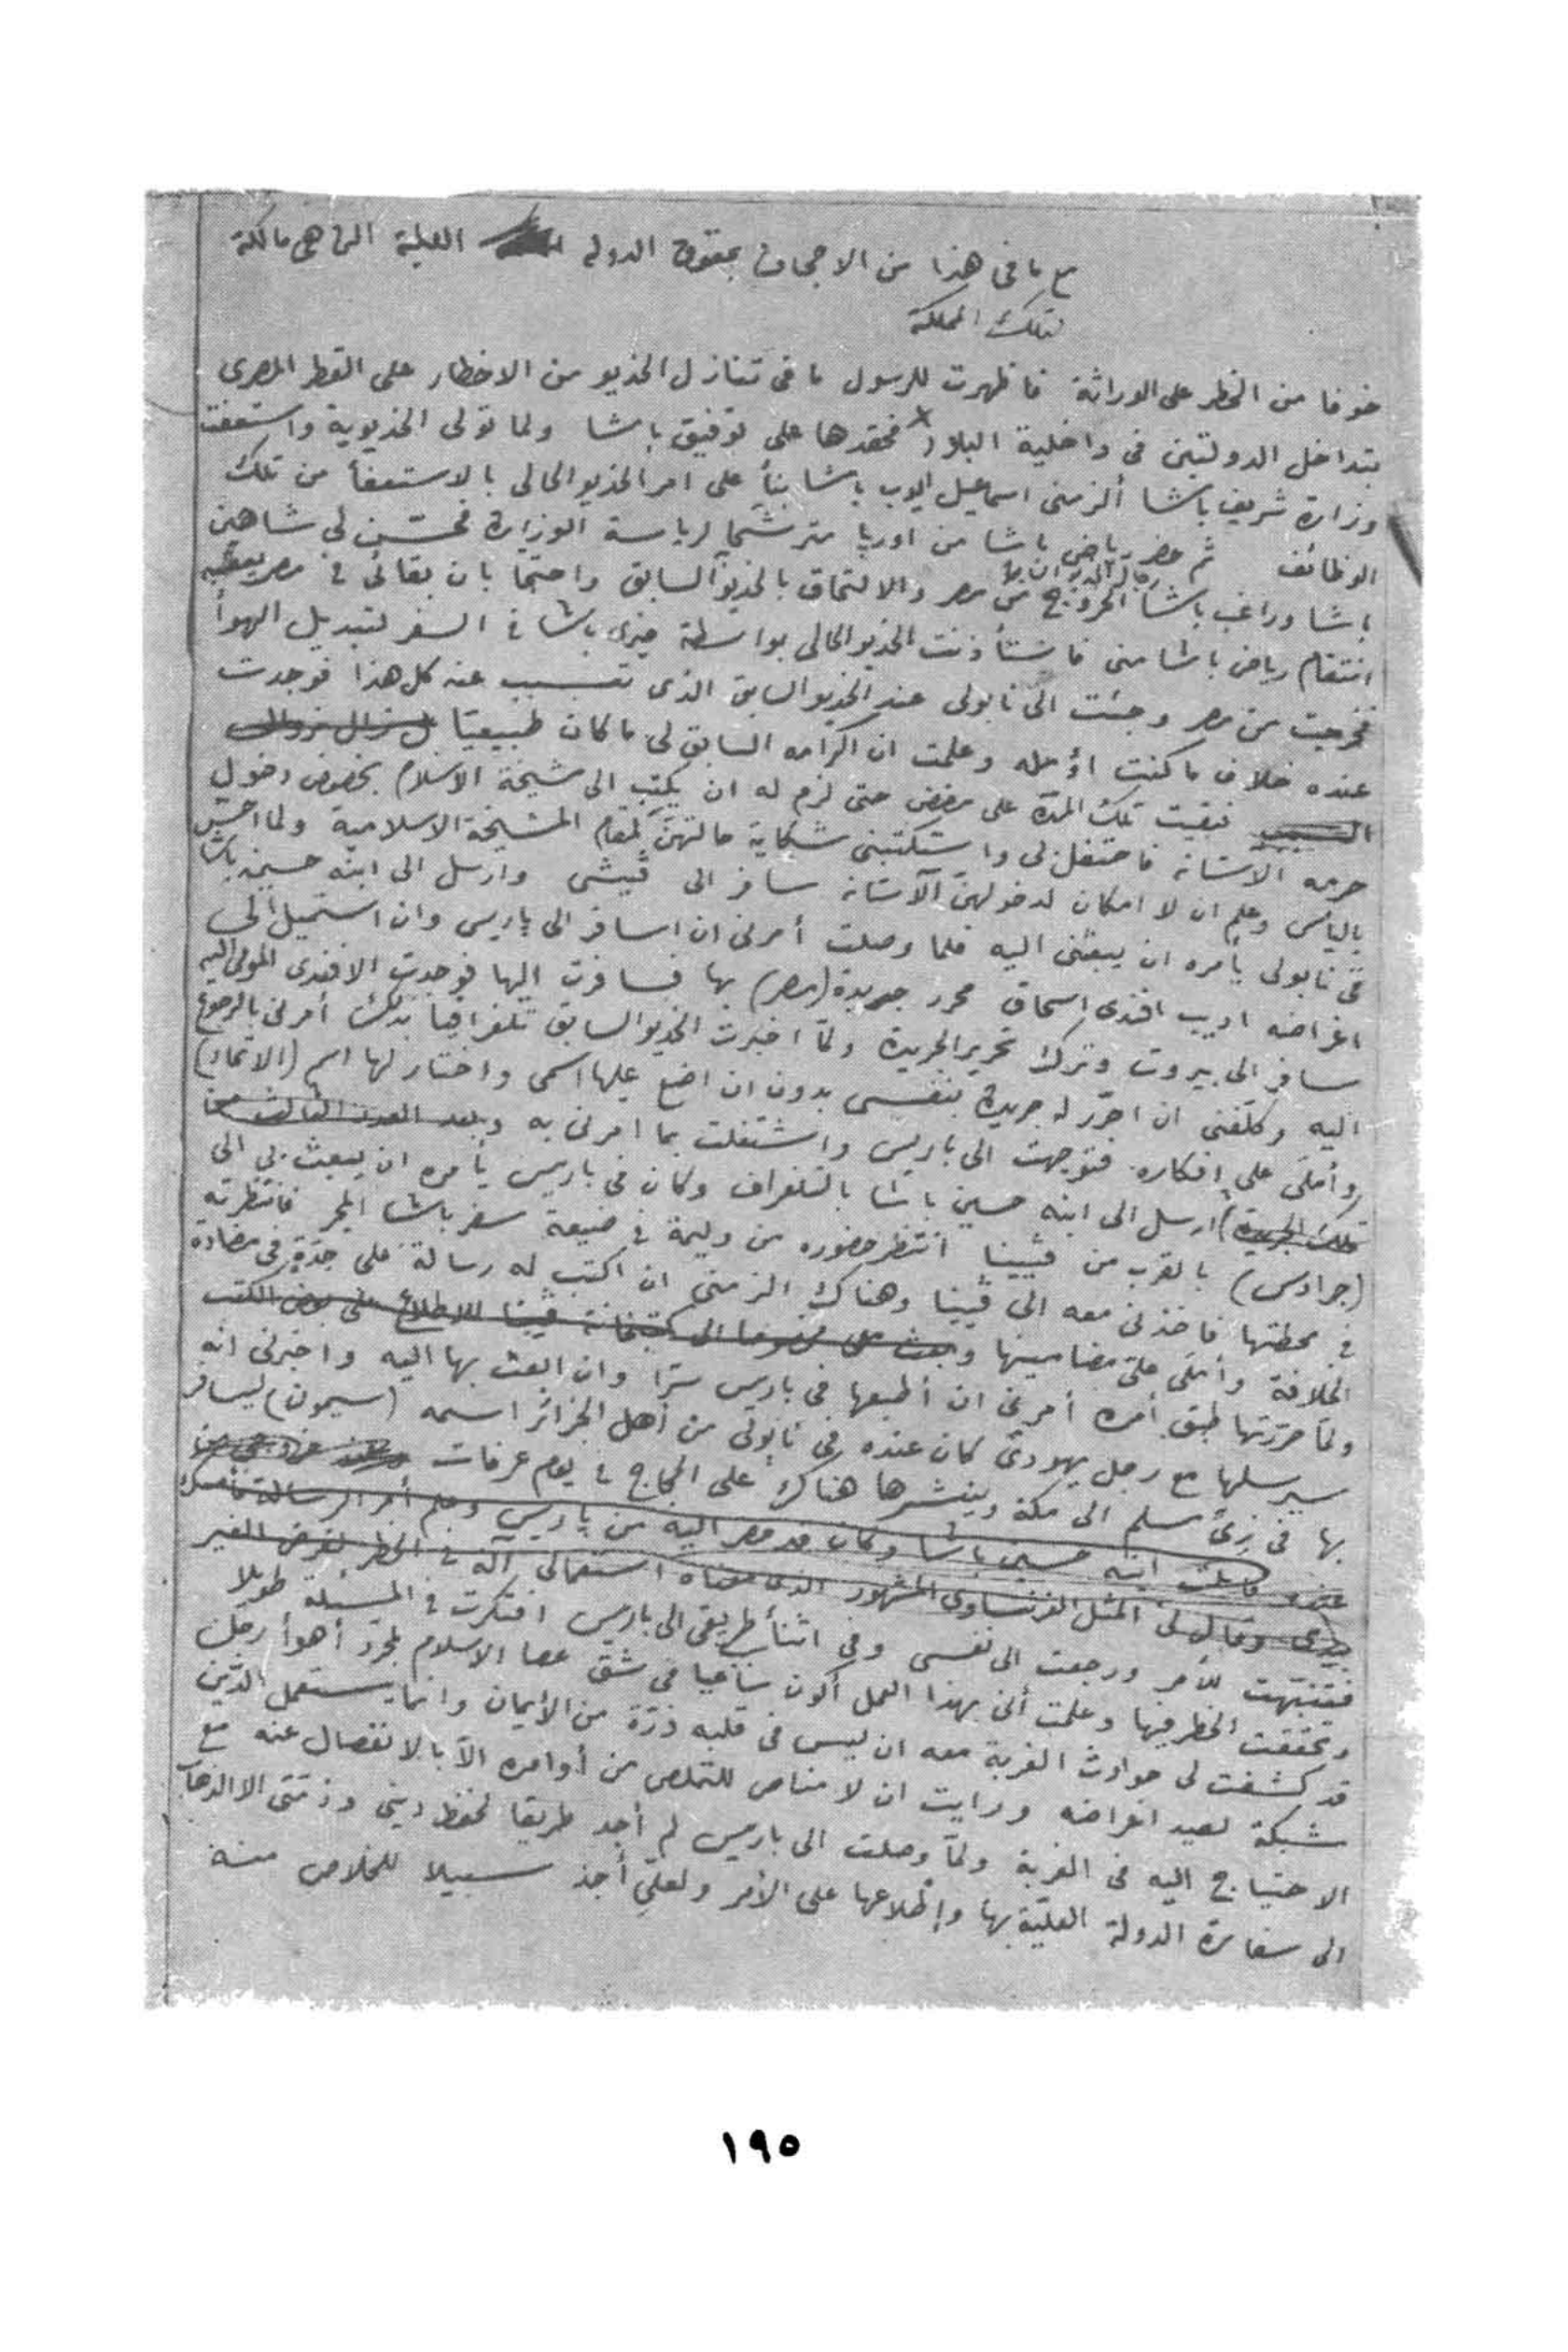 مع ما فى هذا من الاجحاف بحقوق الدولة العلية التى هى مالكة
لتلك المملكة
خوفا من الخطر على الوراثة فاظهرت للرسول ما فى تنازل الخديو من الاخطار على القطر المصرى
بتداخل الدولتين فى داخلية البلاد فحقدها على توفيق باشا ولما تولى الخديوية واستعفت
وزارة شريف باشا ألزمنى اسماعيل ايوب باشا بنأ على امر الخديو الحالى بالاستعفأ من تلك
الوظائف ثم حضر رياض باشا من اوربا مترشحا لرياسة الوزارة فحسّن لى شاهين
باشا وراغب باشا الخروج من مصر والالتحاق بالخديو السابق واحتجا بان بقائى فى مصر يعقبه
انتقام رياض باشا منى فاستأذنت الخديو الحالى بواسطة خيرى باشا فى السفر لتبديل الهوأ
فخرجت من مصر وجئت الى نابولى عند الخديو السابق الذى تسبب عنه كل هذا فوجدت
عنده خلاف ما كنت اؤمله وعلمت ان اكرامه السابق لى ما كان طبيعيّا
فبقيت تلك المدّة على مضض حتى لزم له ان يكتب الى مشيخة الاسلام بخصوص دخول
حرمه الآستانة فاحتفل لى واستكتبنى شكاية حالتهنّ لمقام المشيخة الاسلامية ولما احسّ
بالياس وعلم ان لا امكان لدخولهنّ الآستانة سافر الى ڤيشى وارسل الى ابنه حسين باشا
فى نابولى يأمره ان يبعثنى اليه فلما وصلت أمرنى ان اسافر الى پاريس وان استميل الى
اغراضه اديب افندى اسحاق محرر جريدة (مصر) بها فسافرت اليها فوجدت الافندى المومى اليه
سافر الى بيروت وترك تحرير الجريدة ولمّا اخبرت الخديو السابق تلغرافيا بذلك أمرنى بالرجوع
اليه وكلّفنى ان احرّر له جريدة بنفسى بدون ان اضع عليها اسمى واختار لها اسم (الاتحاد)
وأملَى علىّ افكاره. فتوجهت الى باريس واشتغلت بما امرنى به وبعد العدد الثالث من
تلك الجريدة ارسل الى ابنه حسين باشا بالتلغراف وكان فى باريس يأمره ان يبعث بى الى
(جرادس) بالقرب من ڤيينا انتظر حضوره من وليمة فى ضيعة سفر باشا المجر فانتظرته
فى محطتها فاخذنى معه الى ڤيينا وهناك الزمنى ان اكتب له رسالة على حِدَةٍ فى مضادة
الخلافة وأملَى علىّ مضامينها وبعث الى كتبخانة ڤيينا للاطلاع على بعض الكتب
ولمّا حرّرتها طبق أمره أمرنى ان أطبعها فى باريس سرّا وان ابعث بها اليه واخبرنى انه
سيرسلها مع رجل يهودى كان عنده فى نابولى من أهل الجزائر اسمه (سيمون) ليسافر
بها فى زىّ مسلم الى مكة وينشرها هناك على الحجاج فى يوم عرفات
عنده قابلت ابنه حسين باشا وكان قد حضر اليه من پاريس وعلم أمر الرسالة
بيدى وقال لى المثل الفرنساوى المشهور الذى معناه استعمالى آلة فى الخطر لغرض الغير
فتنبّهت للأمر ورجعت الى نفسى وفى اثنأ طريقى الى باريس افتكرت فى المسئلة طويلا
وتحققت الخطر فيها وعلمت أنى بهذا العمل أكون ساعيا فى شق عصا الاسلام لمجرّد أهوأ رجل
قد كشفت لى حوادث الغربة معه ان ليس فى قلبه ذرّة من الأيمان وانما يستعمل الدّين
شبكة لصيد اغراضه ورايت ان لا مناص للتملص من أوامره الاّ بالانفصال عنه مع
الاحتياج اليه فى الغربة ولمّا وصلت الى باريس لم أجد طريقا لحفظ دينى وذمّتى الا الذهاب
الى سفارة الدولة العليّة بها وإطلاعها على الأمر ولعلّى أجد سبيلا للخلاص منه
١٩٥